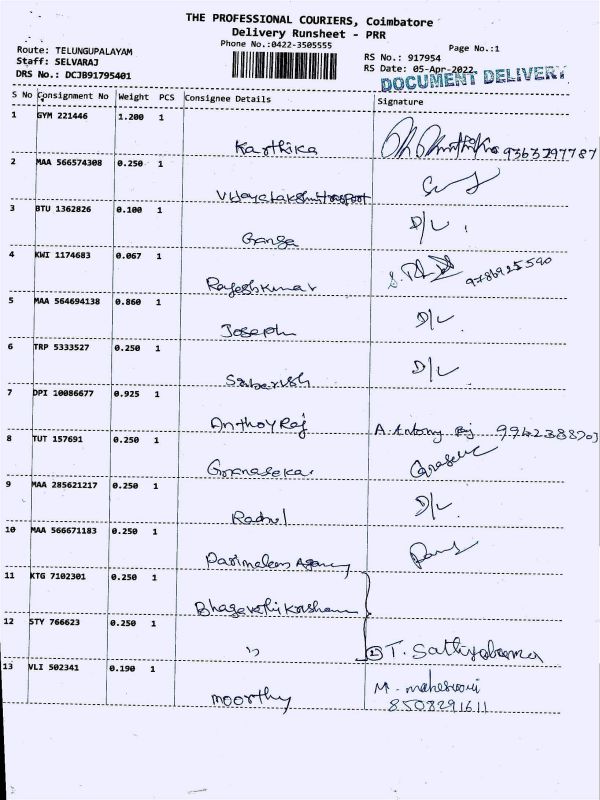 THE PROFESSIONAL COURIERS, Coimbatore
Delivery Runsheet - PRR
Phone No.:0422-3505555
Page No.:1
Route: TELUNGUPALAYAM
Staff: SELVARAJ
DRS No.: DCJB91795401
RS No.: 917954
RS Date: 05-Apr-2022
DOCUMENT DELIVERY
S No Consignment No Weight PCS Consignee Details Signature
1 GYM 221446 1.200 1
Karthika 9363297787
2 MAA 566574308 0.250 1
Vijayalakshmi transport
3 BTU 1362826 0.100 1 D/L
Ganga
4 KWI 1174683 0.067 1
Rajeshkumar
5 MAA 564694138 0.860 1 D/L
Joseph
6 TRP 5333527 0.250 1 D/L
Sabarish
7 DPI 10086677 0.925 1
Anthoy Raj A. Antony Raj
8 TUT 157691 0.250 1
Gnanasekar
9 MAA 285621217 0.250 1 D/L
Rahul
10 MAA 566671183 0.250 1
Parimalam Agency
11 KTG 7102301 0.250 1
12 STY 766623 0.250 1
" ② T. Sathyabama
13 VLI 502341 0.190 1 M. maheswari
moorthy 8508291611